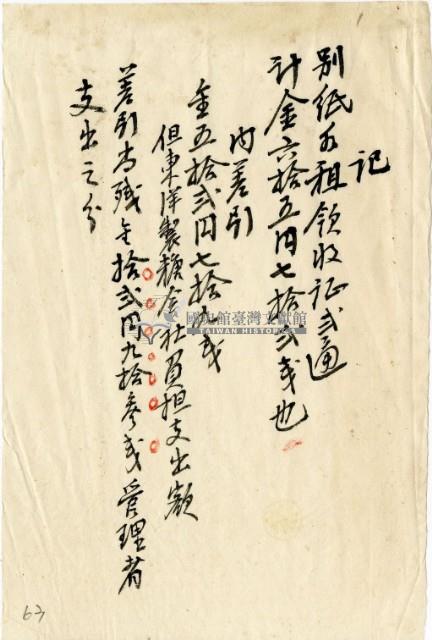 記
別紙水租領收証弍通
計金六拾五円七拾弍戋也
內差引
金五拾弍円七拾九戋
但東洋製糖会社負担支出額
差引尚残金拾弍円九拾参戋管理者
支出之分
國史館臺灣文獻館
TAIWAN HISTORICA
63